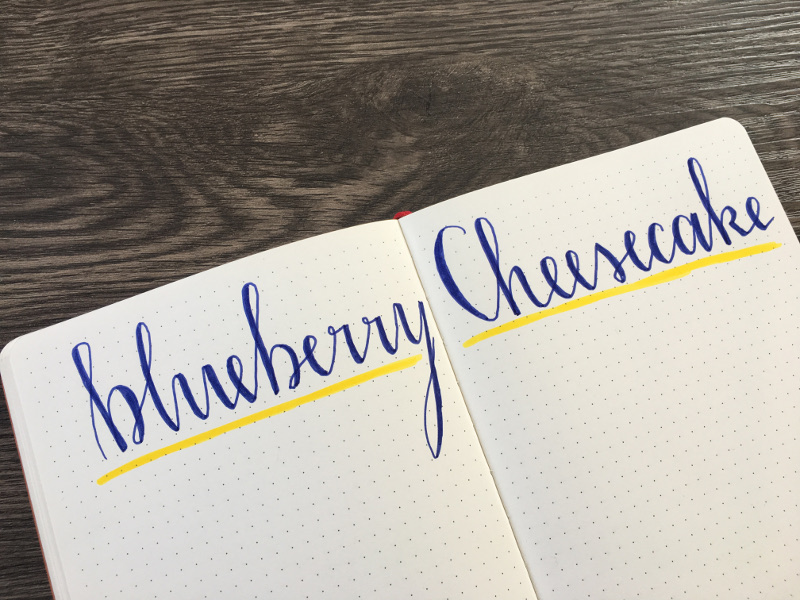 blueberry Cheesecake